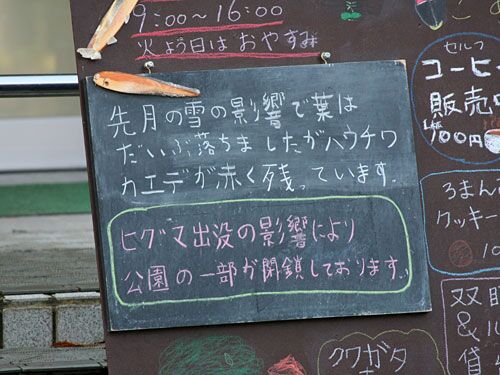 9:00～16:00
火よう日はおやすみ
先月の雪の影響で葉は
だいぶ落ちましたがハウチワ
カエデが赤く残っています。
ヒグマ出没の影響により
公園の一部が閉鎖しております。
セルフ
コーヒ
販売中
100円
ろまん
クッキー
10
双眼
&
貸
クワガタ